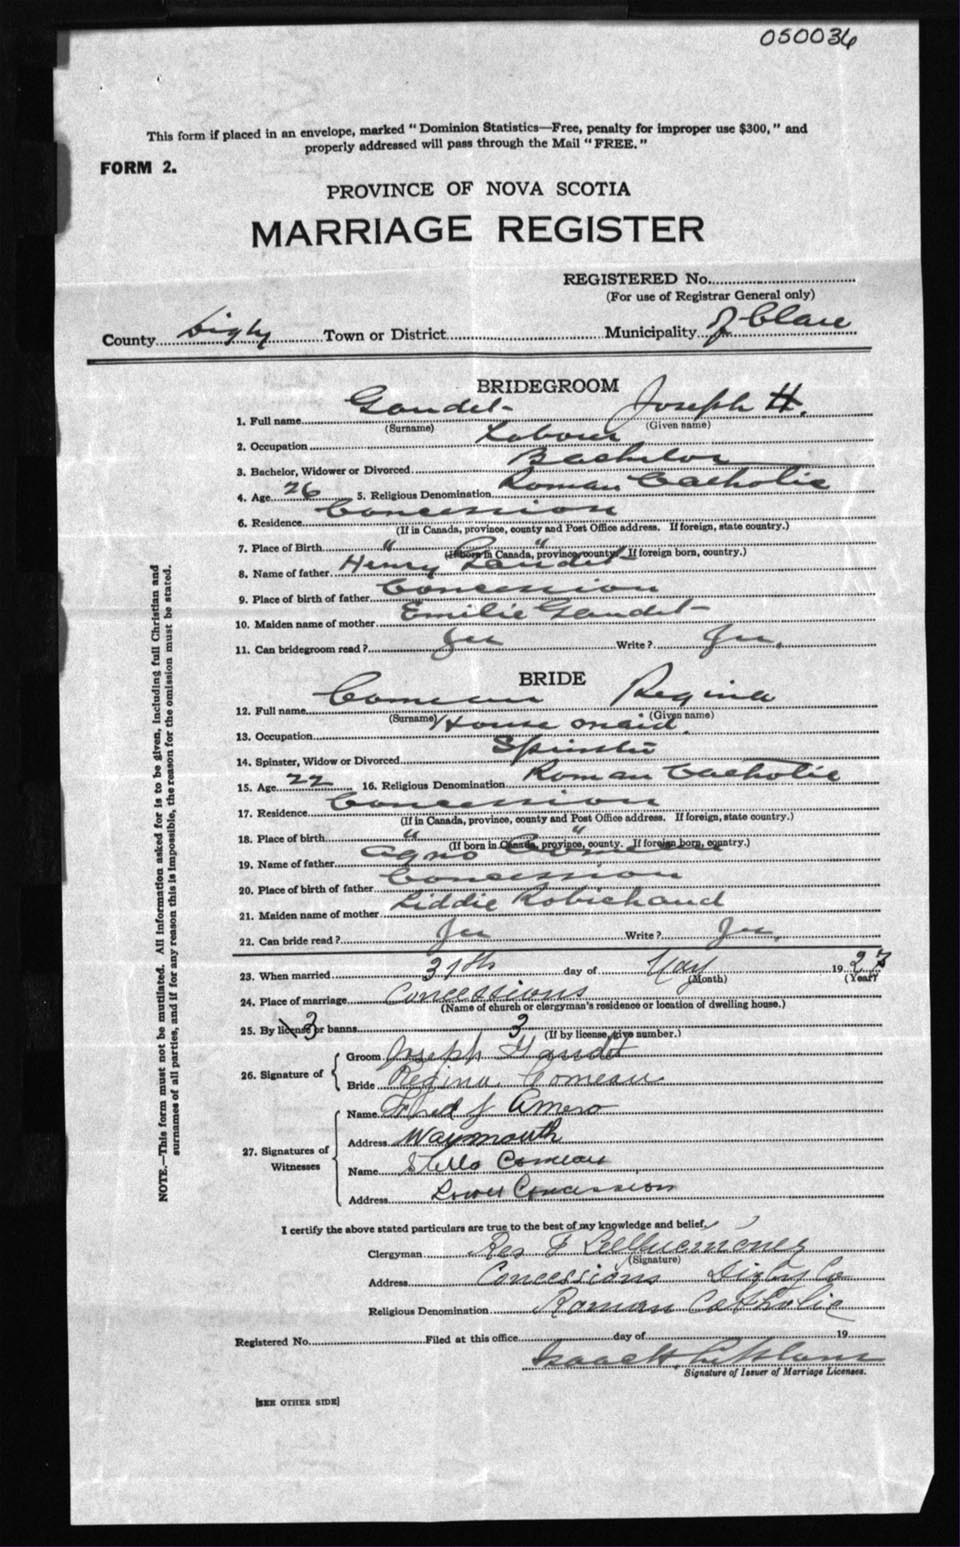 050036
This form if placed in an envelope, marked "Dominion Statistics—Free, penalty for improper use $300," and
properly addressed will pass through the Mail "FREE."
FORM 2.
PROVINCE OF NOVA SCOTIA
MARRIAGE REGISTER
REGISTERED No.
(For use of Registrar General only)
County Digby Town or District Municipality Clare
BRIDEGROOM
1. Full name Gaudet Joseph H.
(Surname) (Given name)
2. Occupation Labour
3. Bachelor, Widower or Divorced Bachelor
4. Age 26 5. Religious Denomination Roman Catholic
6. Residence Concession
(If in Canada, province, county and Post Office address. If foreign, state country.)
7. Place of Birth " "
(If born in Canada, province, county. If foreign born, country.)
8. Name of father Henry Gaudet
9. Place of birth of father Concession
10. Maiden name of mother Emilie Gaudet
11. Can bridegroom read? Yes Write? Yes.
BRIDE
12. Full name Comeau Regina
(Surname) (Given name)
13. Occupation House maid.
14. Spinster, Widow or Divorced Spinster
15. Age 22 16. Religious Denomination Roman Catholic
17. Residence Concession
(If in Canada, province, county and Post Office address. If foreign, state country.)
18. Place of birth " "
(If born in Canada, province, county. If foreign born, country.)
19. Name of father Agno Comeau
20. Place of birth of father Concession
21. Maiden name of mother Liddie Robichaud
22. Can bride read? Yes Write? Yes.
23. When married day of May 1923
(Month) (Year)
24. Place of marriage Concessions
(Name of church or clergyman's residence or location of dwelling house.)
25. By license or banns 3 3
(If by license, give number.)
26. Signature of
Groom Joseph Gaudet
Bride Regina Comeau
27. Signatures of Witnesses
Name Fred J Amero
Address Waymouth
Name Stella Comeau
Address Lower Concession
I certify the above stated particulars are true to the best of my knowledge and belief.
Clergyman
(Signature)
Address Concessions Digby Co
Religious Denomination Roman Catholic
Registered No. Filed at this office day of 19
Isaac H.
Signature of Issuer of Marriage Licenses.
[SEE OTHER SIDE]
NOTE.—This form must not be mutilated. All information asked for is to be given, including full Christian and
surnames of all parties, and if for any reason this is impossible, the reason for the omission must be stated.